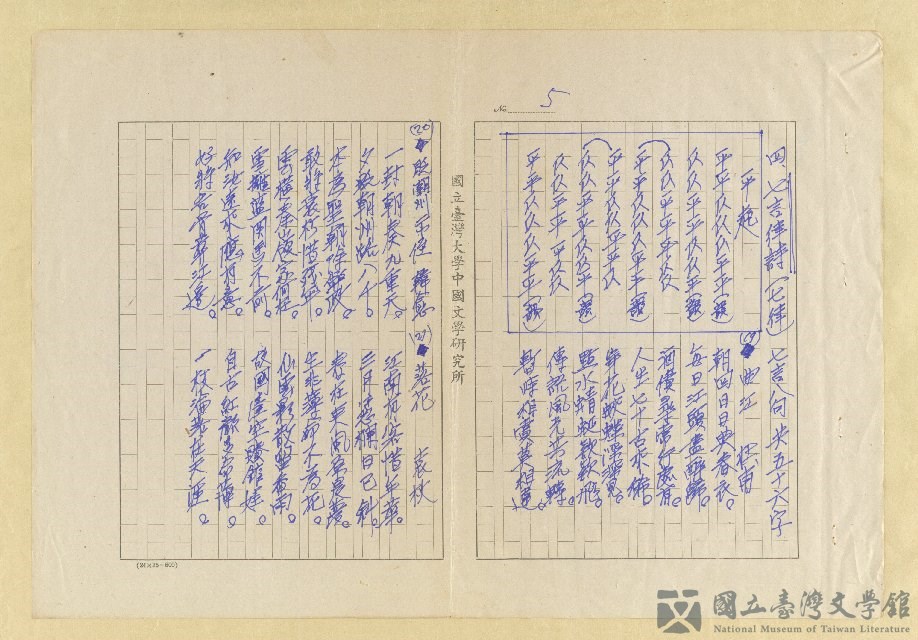 No. 5
四 七言律詩(七律) 七言八句 共五十六字
平起
平平仄仄仄平平(韻)
仄仄平平仄仄平(韻)
仄仄平平平仄仄
平平仄仄仄平平(韻)
平平仄仄平平仄
仄仄平平仄仄平(韻)
仄仄平平平仄仄
平平仄仄仄平平(韻)
(19) 曲江 杜甫
朝回日日典春衣
每日江頭盡醉歸。
酒債尋常行處有。
人生七十古來稀。
穿花蛺蝶深深見。
點水蜻蜓款款飛。
傳語風光共流轉。
暫時相賞莫相違。
國立臺灣大學中國文學研究所
(20) 貶潮州示侄 韓愈
一封朝奏九重天。
夕貶潮州路八千。
本為聖朝除弊政。
敢將衰朽惜殘年。
雲橫秦嶺家何在
雪擁藍關馬不前。
知汝遠來應有意。
好將吾骨葬江邊。
(21) 落花 袁枚
江南有客惜年華。
三月憑欄日已斜。
春在東風原是夢。
生非薄命不為花。
仙雲影散留香雨。
故國臺空剩館娃。
自古紅顏多命薄。
一枝淪落在天涯。
(24×25=600)
國立臺灣文學館
National Museum of Taiwan Literature